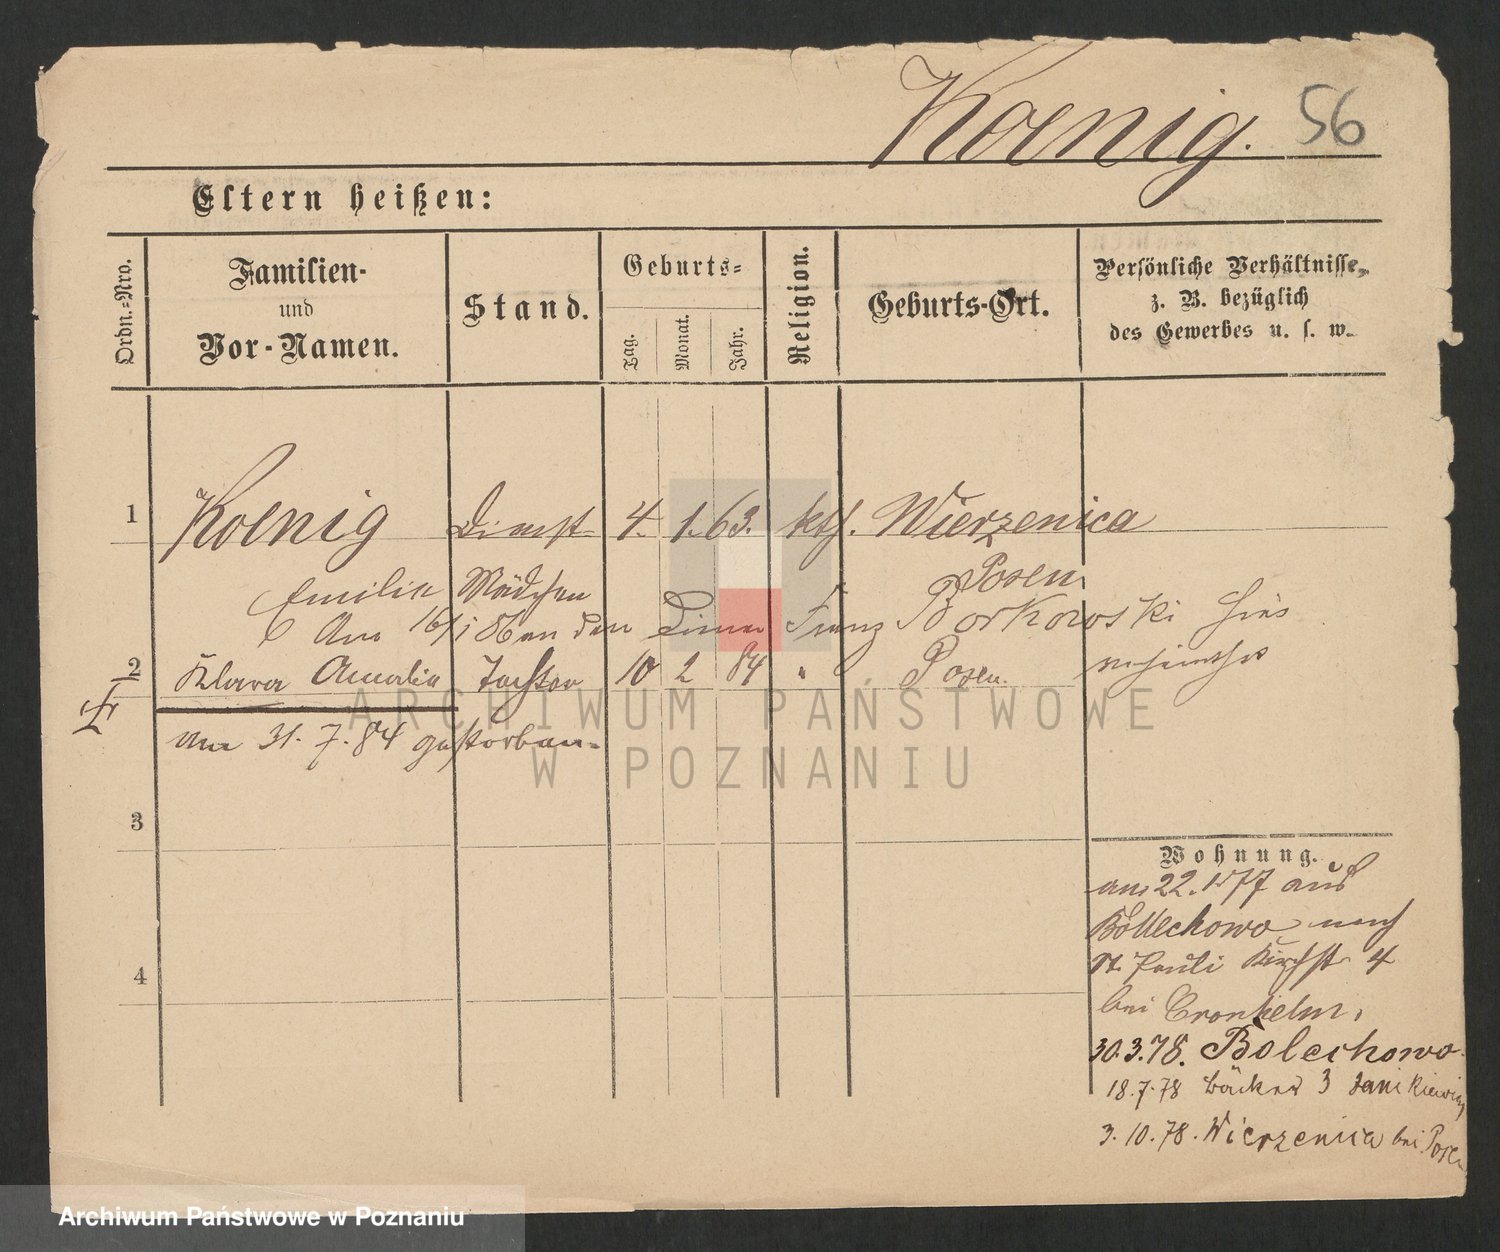 Koenig. 56
Eltern heißen:
Ordn.-Nro.
Familien-
und
Vor-Namen.
Stand.
Geburts-
Tag.
Monat.
Jahr.
Religion.
Geburts-Ort.
Persönliche Verhältnisse,
z. B. bezüglich
des Gewerbes u. s. w.
1 Koenig Dienst- 4. 1. 63. kth. Wierzenica
Emilie Mädchen Posen
Am 16/1 86 an den Diener Franz Borkowski hier
verheirathet
2 Klara Amalie Tochter 10 2 84 " Posen.
am 31. 7. 84 gestorben.
3
4
Wohnung.
am 22. 1 77 aus
Bollechowo nach
St. Pauli Kirchst 4
bei Cronhelm.
30.3.78. Bolechowo.
18.7.78 Bäcker 3
3.10.78. Wierzenica bei Posen
ARCHIWUM PAŃSTWOWE
W POZNANIU
Archiwum Państwowe w Poznaniu